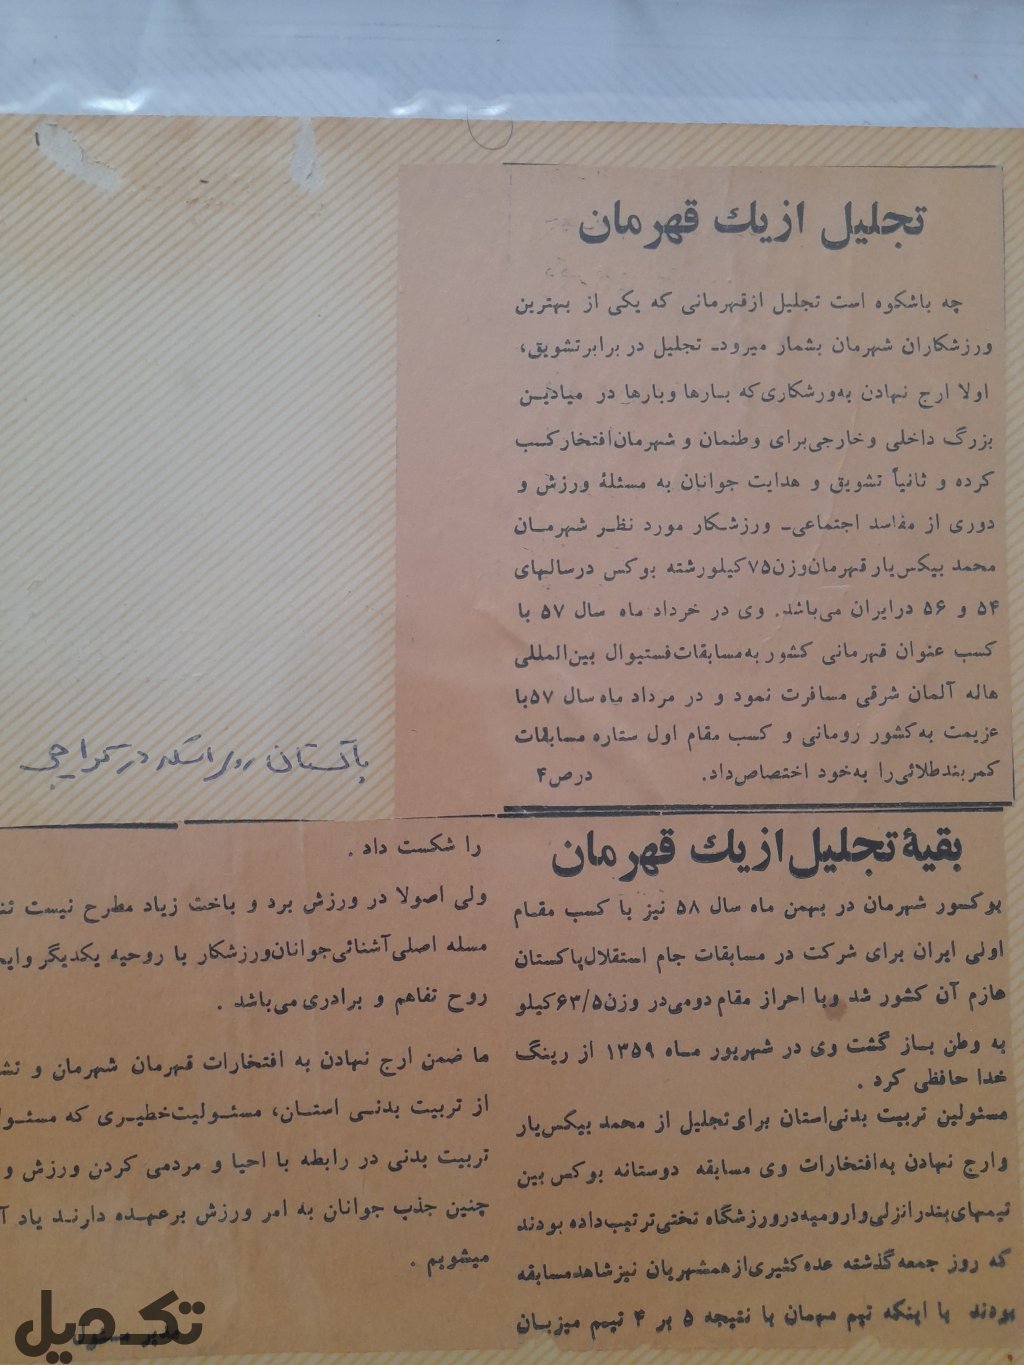 تجلیل از یك قهرمان
چه باشکوه است تجلیل ازقهرمانی که یکی از بهترین
ورزشکاران شهرمان بشمار میرود۔ تجلیل در برابرتشویق،
اولا ارج نهادن به‌ورشکاری‌که بـارها وبارها در میادیـن
بزرگ داخلی وخارجی‌برای وطنمان و شهرمان‌افتخارکسب
کرده و ثانیاً تشویق و هدایت جوانان به مسئلهٔ ورزش و
دوری از مفاسد اجتماعی۔ ورزشـکار مورد نظـر شهرمـان
محمد بیکس‌یار قهرمان‌وزن۷۵کیلورشته بوکس درسالهای
۵۴ و ۵۶ درایران می‌باشد. وی در خرداد ماه سال ۵۷ با
کسب عنوان قهرمانی کشور به‌مسابقات‌فستیوال بین‌المللی
هاله آلمان شرقی مسافرت نمود و در مرداد ماه سال ۵۷با
عزیمت به‌کشور رومانی و کسب مقام اول ستاره مسابقات
کمربندطلائی‌را به‌خود اختصاص‌داد. درص۴
پاکستان در کراچی
بقیهٔ تجلیل از یك قهرمان
بوکسور شهرمان در بهمن ماه سال ۵۸ نیز با کسب مقـام
اولی ایران برای شرکت در مسابقات جام استقلال‌پاکستان
هازم آن کشور شد وبا احراز مقام دومی‌در وزن۶۳/۵کیلو
به وطن بـاز گشت وی در شهریور مـاه ۱۳۵۹ از رینگ
خدا حافظی کرد .
مسئولین تربیت بدنی‌استان برای‌تجلیل از محمد بیکس‌یار
وارج نهادن به‌افتخارات وی مسابقه دوستانه بوکس بین
تیمهای‌بندرانزلی‌وارومیه‌درورزشگاه تختی‌ترتیب‌داده بودند
که روز جمعه‌گذشته عده‌کثیری‌ازهمشهریان نیزشاهدمسابقه
بودند با اینکه تیم مهمان با نتیجه ۵ بر ۴ تیـم میزبـان
را شکست داد .
ولی اصولا در ورزش برد و باخت زیاد مطرح نیست
مسله اصلی‌آشنائی‌جوانان‌ورزشکار با روحیه یکدیگر
روح تفاهم و برادری می‌باشد .
ما ضمن ارج نهادن به افتخارات قهرمان شهرمان و
از تربیت بدنـی استـان، مسئـولیت‌خطیـری که
تربیت بدنی در رابطه با احیا و مردمی کردن ورزش و
چنین جذب جوانان به امر ورزش برعهـده دارنـد یاد
میشویم .
مدیر مسئول
تکمیل